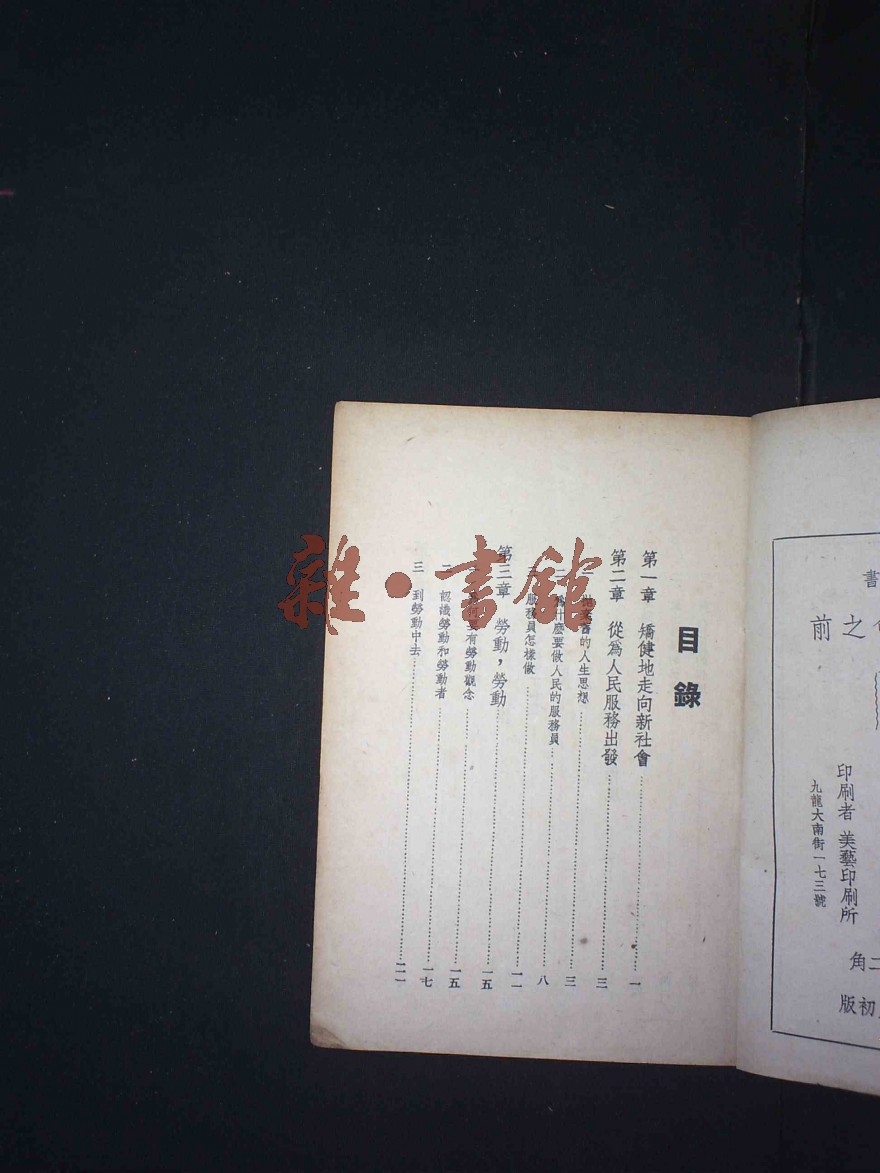 書
之前
印刷者 美藝印刷所
九龍大南街一七三號
二角
初版
目錄
第一章 矯健地走向新社會…………一
第二章 從為人民服務出發…………三
舊的人生思想…………三
二 為什麼要做人民的服務員…………八
三 服務員怎樣做…………一二
第三章 勞動，勞動…………一五
要有勞動觀念…………一五
二 認識勞動和勞動者…………一七
三 到勞動中去…………二一
雜·書館